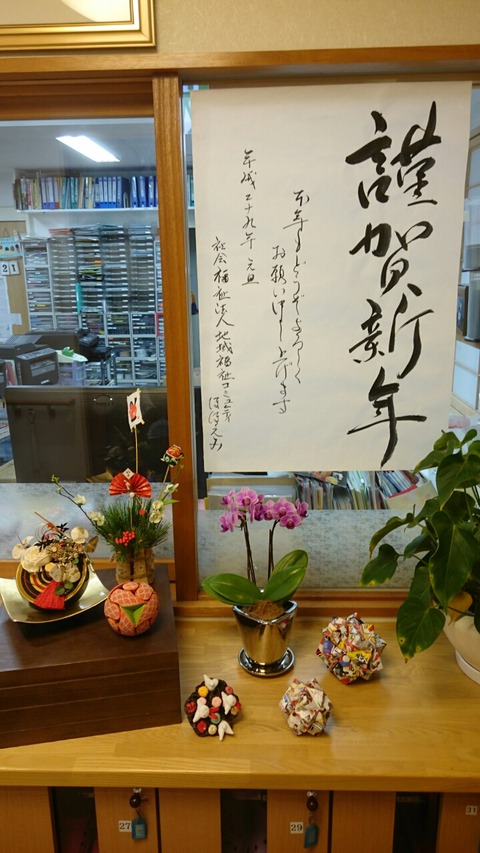 謹賀新年
本年もどうぞよろしく
お願い申し上げます
平成二十九年 元旦
社会福祉法人地域福祉
21
27
29
31